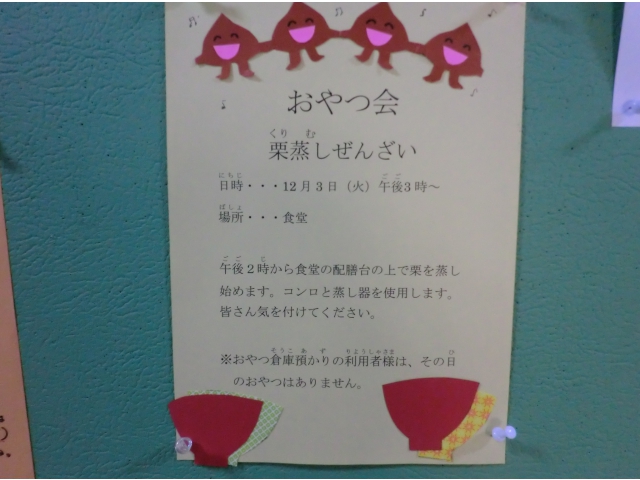 おやつ会
栗蒸しぜんざい
日時・・・12月3日（火）午後3時～
場所・・・食堂
午後２時から食堂の配膳台の上で栗を蒸し
始めます。コンロと蒸し器を使用します。
皆さん気を付けてください。
※おやつ倉庫預かりの利用者様は、その日
のおやつはありません。